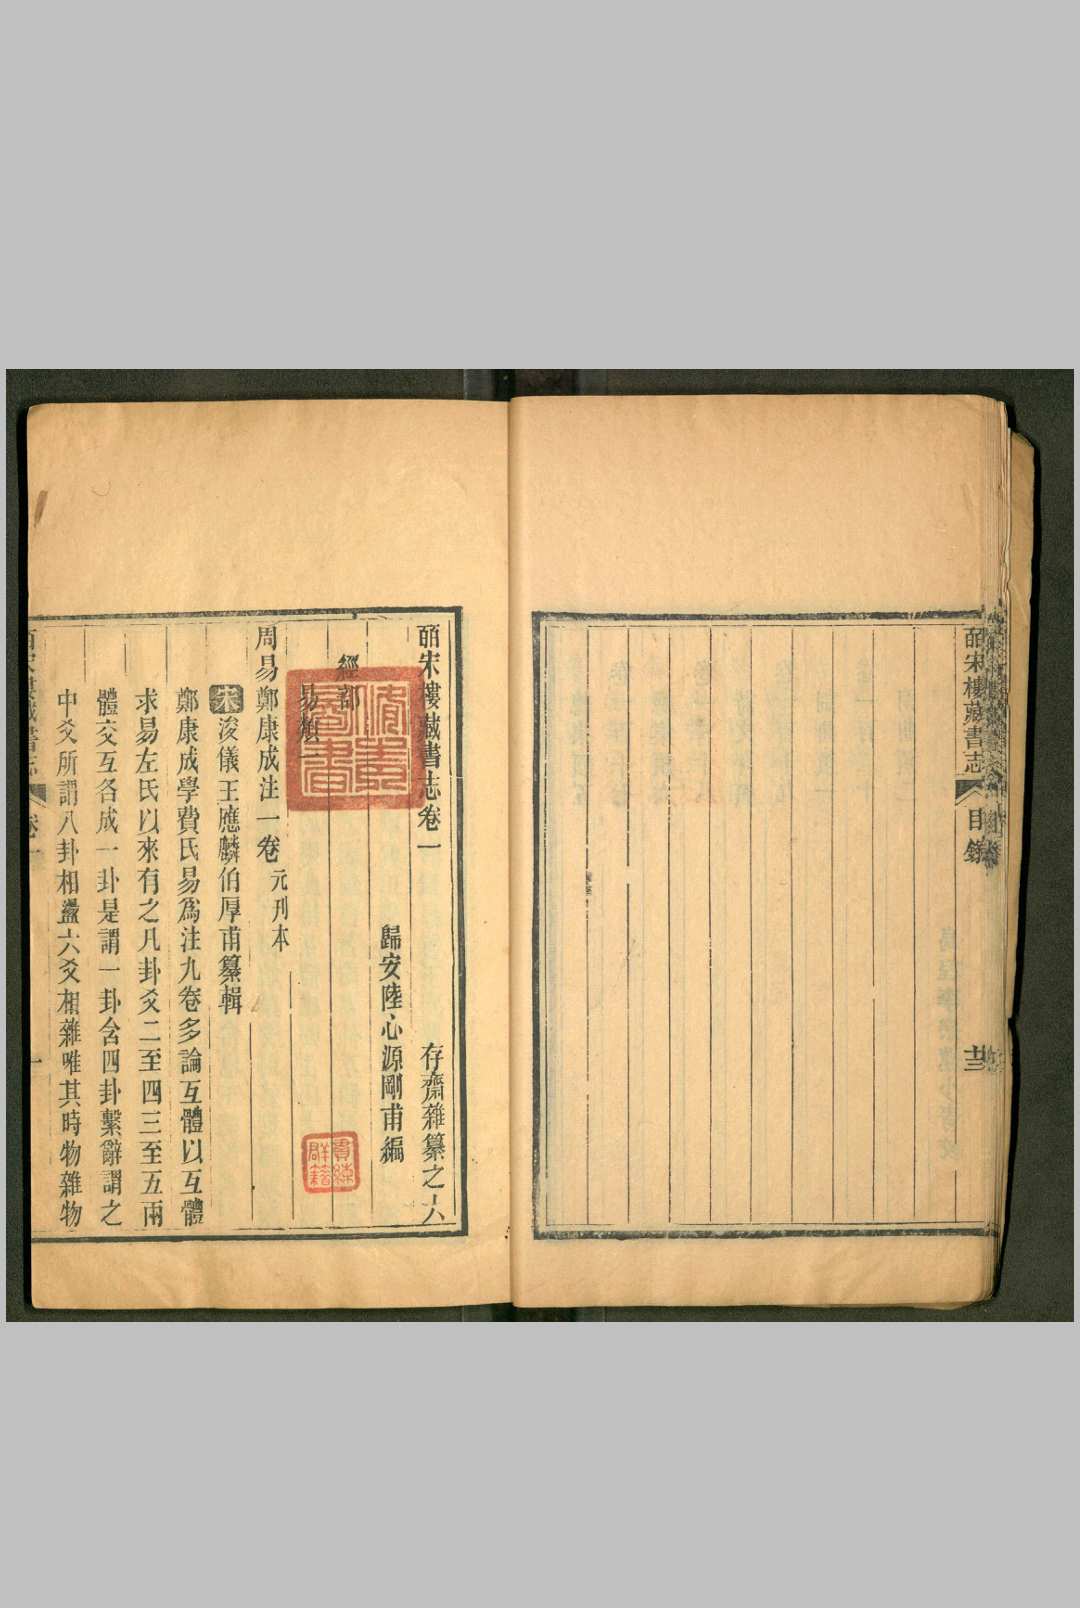 皕宋樓藏書志
目錄
廿三
皕宋樓藏書志卷一
存齋雜纂之六
歸安陸心源剛甫編
經部
易類一
周易鄭康成注一卷 元刊本
宋浚儀王應麟伯厚甫纂輯
鄭康成學費氏易爲注九卷多論互體以互體
求易左氏以來有之凡卦爻二至四三至五兩
體交互各成一卦是謂一卦含四卦繫辭謂之
中爻所謂八卦相盪六爻相雜唯其時物雜物